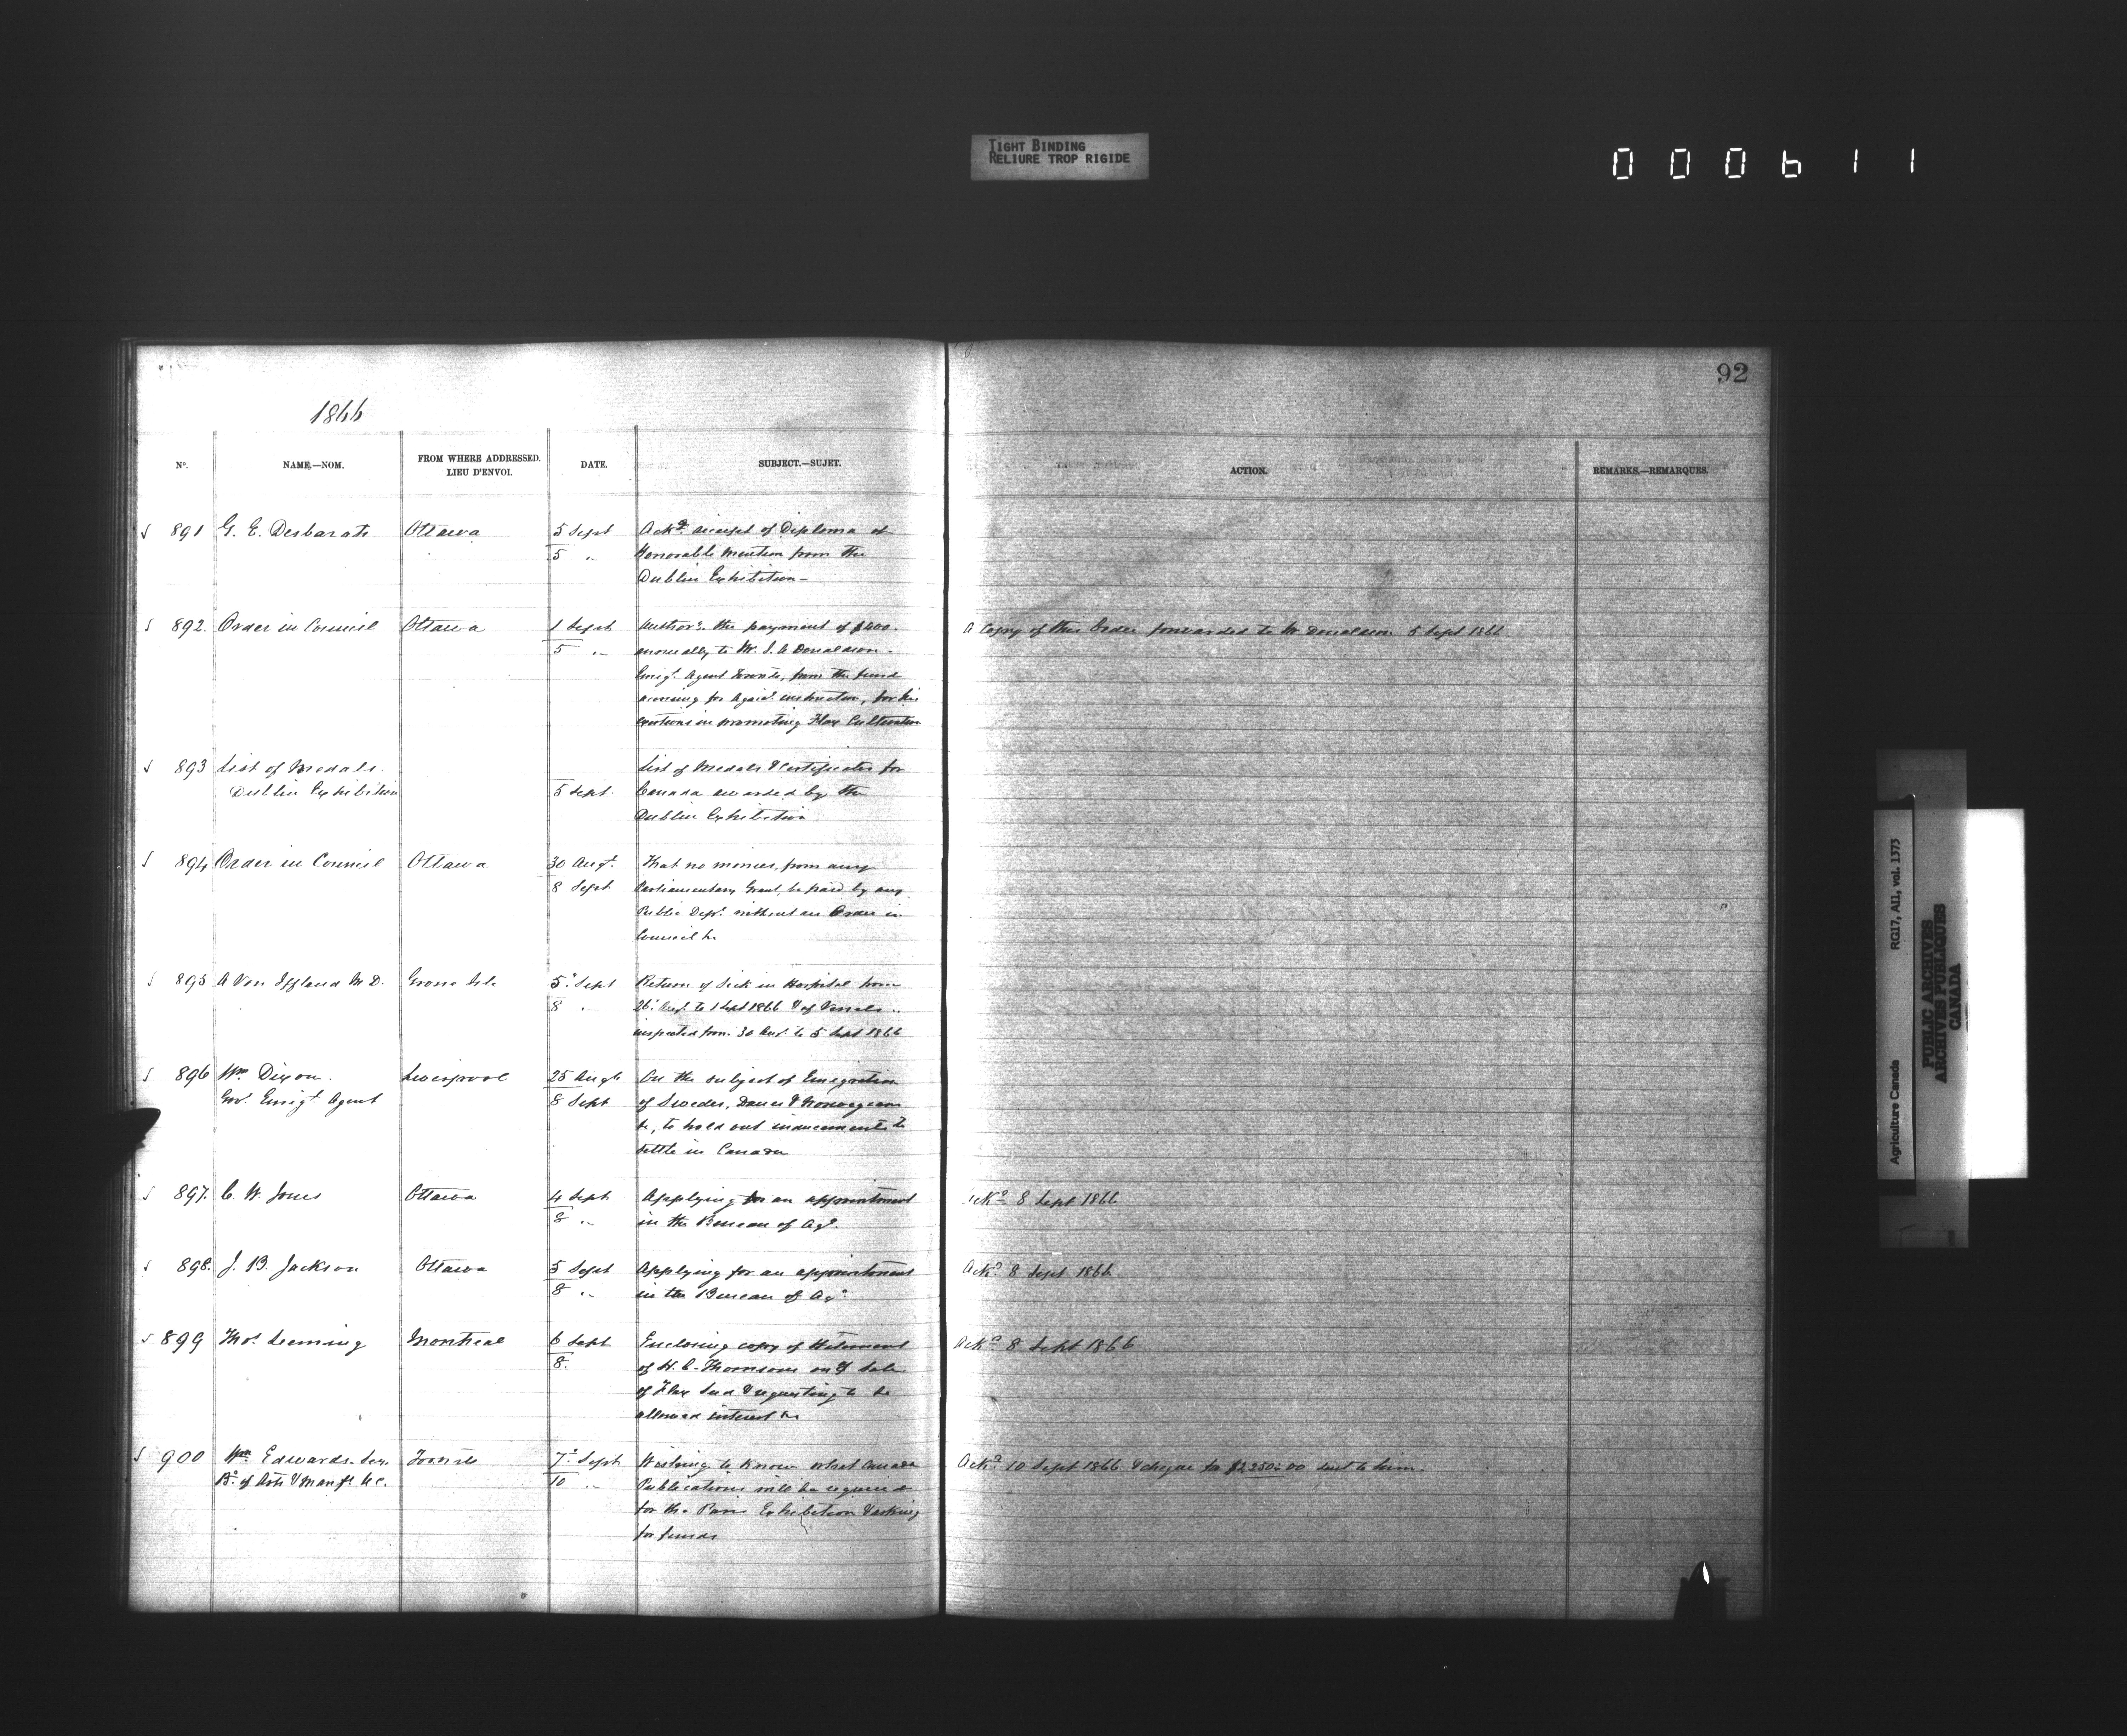 TIGHT BINDING
RELIURE TROP RIGIDE
000611
92
1866
No. NAME.—NOM. FROM WHERE ADDRESSED. LIEU D'ENVOI. DATE. SUBJECT.—SUJET. ACTION. REMARKS.—REMARQUES.
891 G. E. Desbarats Ottawa 5 Sept Ackd receipt of Diploma of
5 " Honorable Mention from the
Dublin Exhibition—
892. Order in Council Ottawa 1 Sept Authorg. the payment of $400. A Copy of this Order forwarded to Mr Donaldson 5 Sept 1866
5 " annually to Mr. J. A Donaldson
Emigt. Agent Toronto, from the fund
arising for Agricl. instruction, for his
exertions in promoting Flax Cultivation
893 List of Medals List of Medals & Certificates for
Dublin Exhibition 5 Sept. Canada awarded by the
Dublin Exhibition
894 Order in Council Ottawa 30 Augt. That no monies, from any
8 Sept Parliamentary Grant, be paid by any
Public Dept. without an Order in
Council &c
895 A Von Iffland M D. Grosse Isle 5 Sept Return of Sick in Hospital from
8 " 26 Augt. to 1 Sept 1866 & of Vessels
inspected from 30 Augt. to 5 Sept 1866
896 Wm Dixon. Liverpool 25 Augt On the subject of Emigration
Govt. Emigt. Agent 8 Sept of Swedes, Danes & Norwegians
&c, to hold out inducements to
settle in Canada
897. C. W. Jones Ottawa 4 Sept Applying for an appointment Ackd 8 Sept 1866
8 " in the Bureau of Agr.
898. J. B. Jackson Ottawa 5 Sept Applying for an appointment Ackd 8 Sept 1866
8 " in the Bureau of Agr.
899 Thos. Leeming Montreal 6 Sept Enclosing copy of Statement Ackd 8 Sept 1866
8. of H. C. Thomson of Sale
of Flax Seed & requesting to be
allowed interest &c
900 Wm Edwards. Secy Toronto 7 Sept Wishing to know what Canada Ackd 10 Sept 1866 & cheque for $2,250.00 sent to him.
Bd. of Arts & Manfs U.C. 10 " Publications will be required
for the Paris Exhibition & asking
for funds
Agriculture Canada RG17, AI1, vol. 1373
PUBLIC ARCHIVES
ARCHIVES PUBLIQUES
CANADA